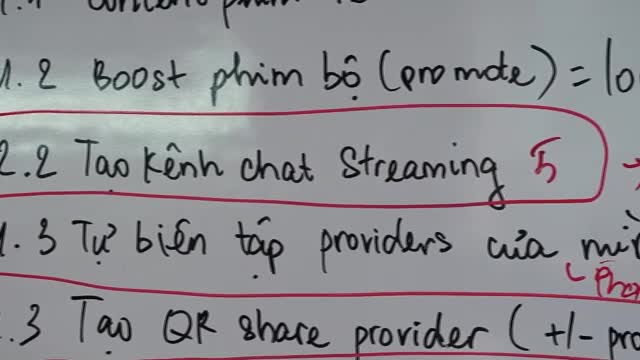 1.2 Boost phim bộ (promote) = 10
2.2 Tạo kênh chat streaming 5
1.3 Tự biên tập providers của
.3 Tạo QR share provider ( +/-